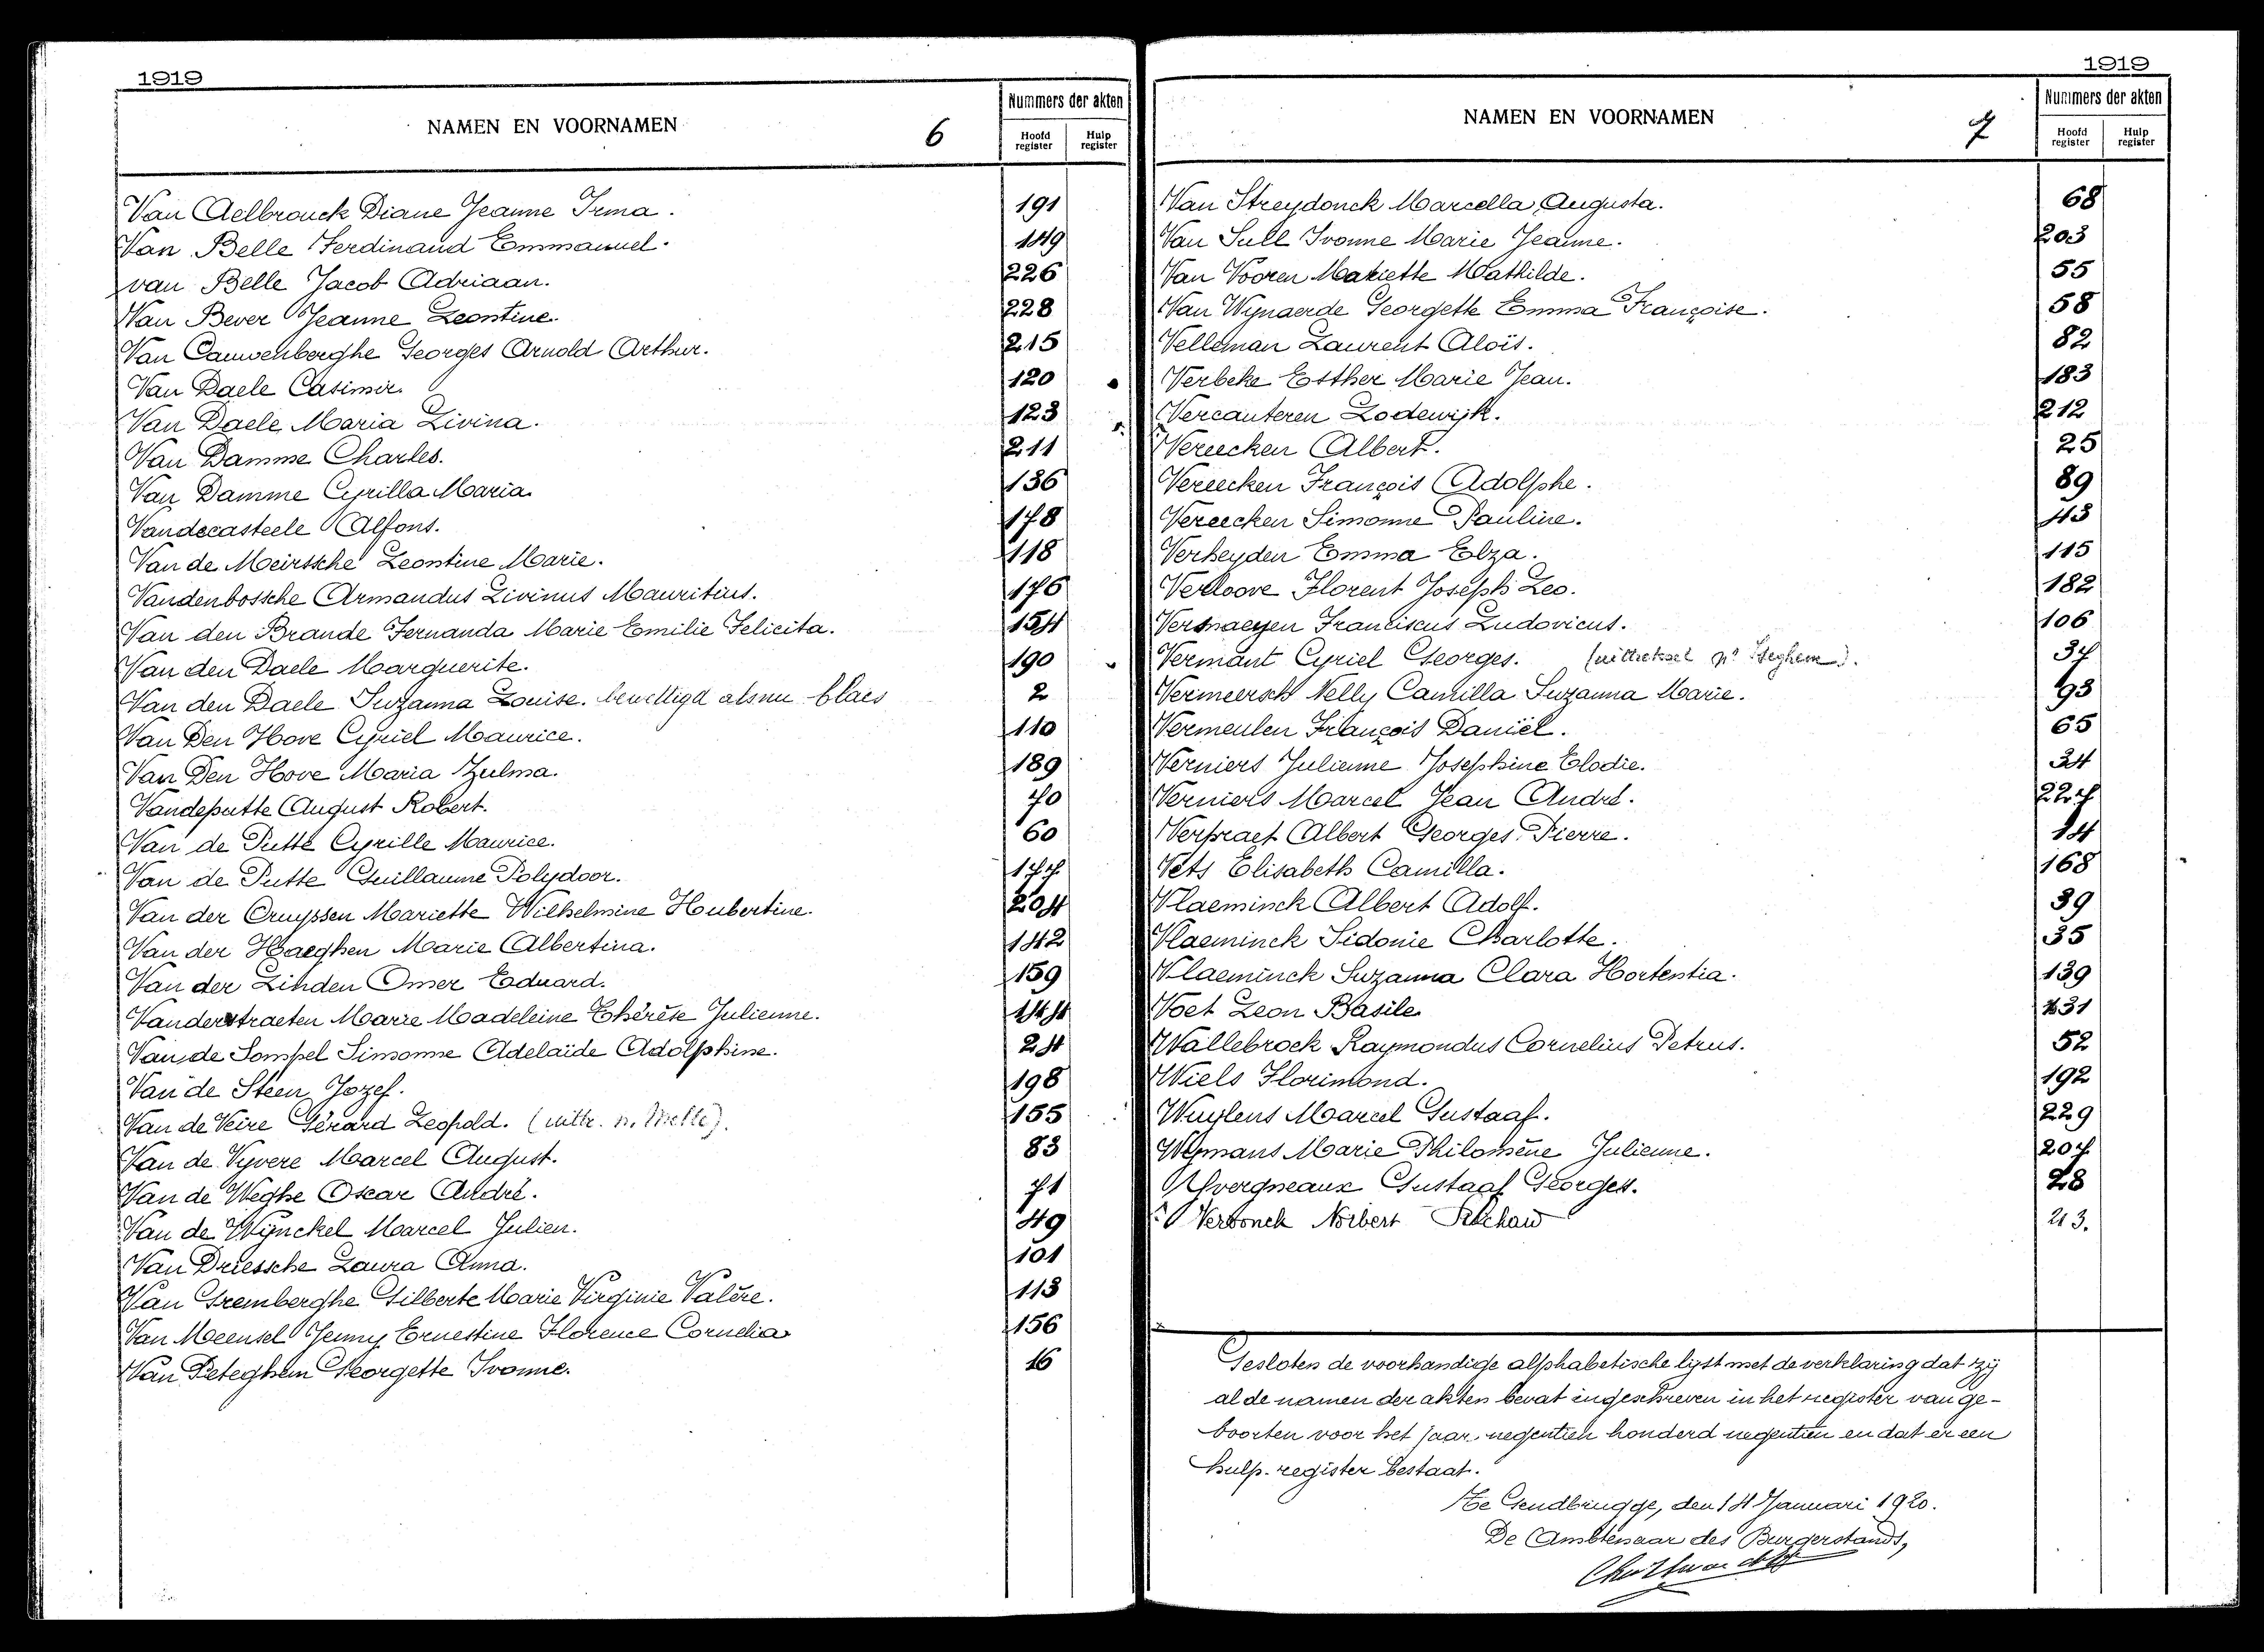 1919
NAMEN EN VOORNAMEN
6
Nummers der akten
Hoofd register
Hulp register
Van Aelbrouck Diane Jeanne Irma. 191
Van Belle Ferdinand Emmanuel. 149
van Belle Jacob Adriaan. 226
Van Bever Jeanne Leontine. 228
Van Cauwenberghe Georges Arnold Arthur. 215
Van Daele Casimir. 120
Van Daele Maria Livina. 123
Van Damme Charles. 211
Van Damme Cyrilla Maria. 136
Vandecasteele Alfons. 178
Van de Meirssche Leontine Marie. 118
Vandenbossche Armandus Livinus Mauritius. 176
Van den Brande Fernanda Marie Emilie Felicita. 154
Van den Daele Marguerite. 190
Van den Daele Suzanna Louise. bewettigd als nu blaes 2
Van Den Hove Cyriel Maurice. 110
Van Den Hove Maria Zulma. 189
Vandeputte August Robert. 70
Van de Putte Cyrille Maurice. 60
Van de Putte Guillaume Polydoor. 177
Van der Cruyssen Mariette Wilhelmine Hubertine. 204
Van der Haeghen Marie Albertina. 142
Van der Linden Omer Eduard. 159
Vanderstraeten Marie Madeleine Thérèse Julienne. 144
Van de Sompel Simonne Adelaïde Adolphine. 24
Van de Steen Jozef. 198
Van de Veire Gérard Leopold. (uittr. n. Melle). 155
Van de Vyvere Marcel August. 83
Van de Weghe Oscar André. 71
Van de Wynckel Marcel Julien. 49
Van Driessche Laura Anna. 101
Van Gremberghe Gilberte Marie Virginie Valère. 113
Van Meensel Jenny Ernestine Florence Cornelia 156
Van Peteghem Georgette Ivonne. 16
1919
NAMEN EN VOORNAMEN
7
Nummers der akten
Hoofd register
Hulp register
Van Streydonck Marcella Augusta. 68
Van Sull Ivonne Marie Jeanne. 203
Van Vooren Mariette Mathilde. 55
Van Wynaerde Georgette Emma Françoise. 58
Velleman Laurent Aloïs. 82
Verbeke Esther Marie Jean. 183
Vercauteren Lodewijk. 212
Vereecken Albert. 25
Vereecken François Adolphe. 89
Vereecken Simonne Pauline. 43
Verheyden Emma Elza. 115
Verloove Florent Joseph Leo. 182
Vermaeyen Franciscus Ludovicus. 106
Vermant Cyriel Georges. (uittreksel nr Iseghem). 37
Vermeersch Nelly Camilla Suzanna Marie. 93
Vermeulen François Daniël. 65
Verniers Julienne Josephine Elodie. 34
Verniers Marcel Jean André. 227
Verpraet Albert Georges Pierre. 14
Vets Elisabeth Camilla. 168
Vlaeminck Albert Adolf. 39
Vlaeminck Sidonie Charlotte. 35
Vlaeminck Suzanna Clara Hortentia. 139
Voet Leon Basile 231
Wallebroek Raymondus Cornelius Petrus. 52
Wiels Florimond. 192
Wuylens Marcel Gustaaf. 229
Wymans Marie Philomène Julienne. 207
Yvergneaux Gustaaf Georges. 28
Verdonck Norbert 213.
Gesloten de voorhandige alphabetische lijst met de verklaring dat zij
al de namen der akten bevat ingeschreven in het register van ge-
boorten voor het jaar negentien honderd negentien en dat er een
hulp-register bestaat.
Te Gendbrugge, den 14 Januari 1920.
De Ambtenaar des Burgerstands,